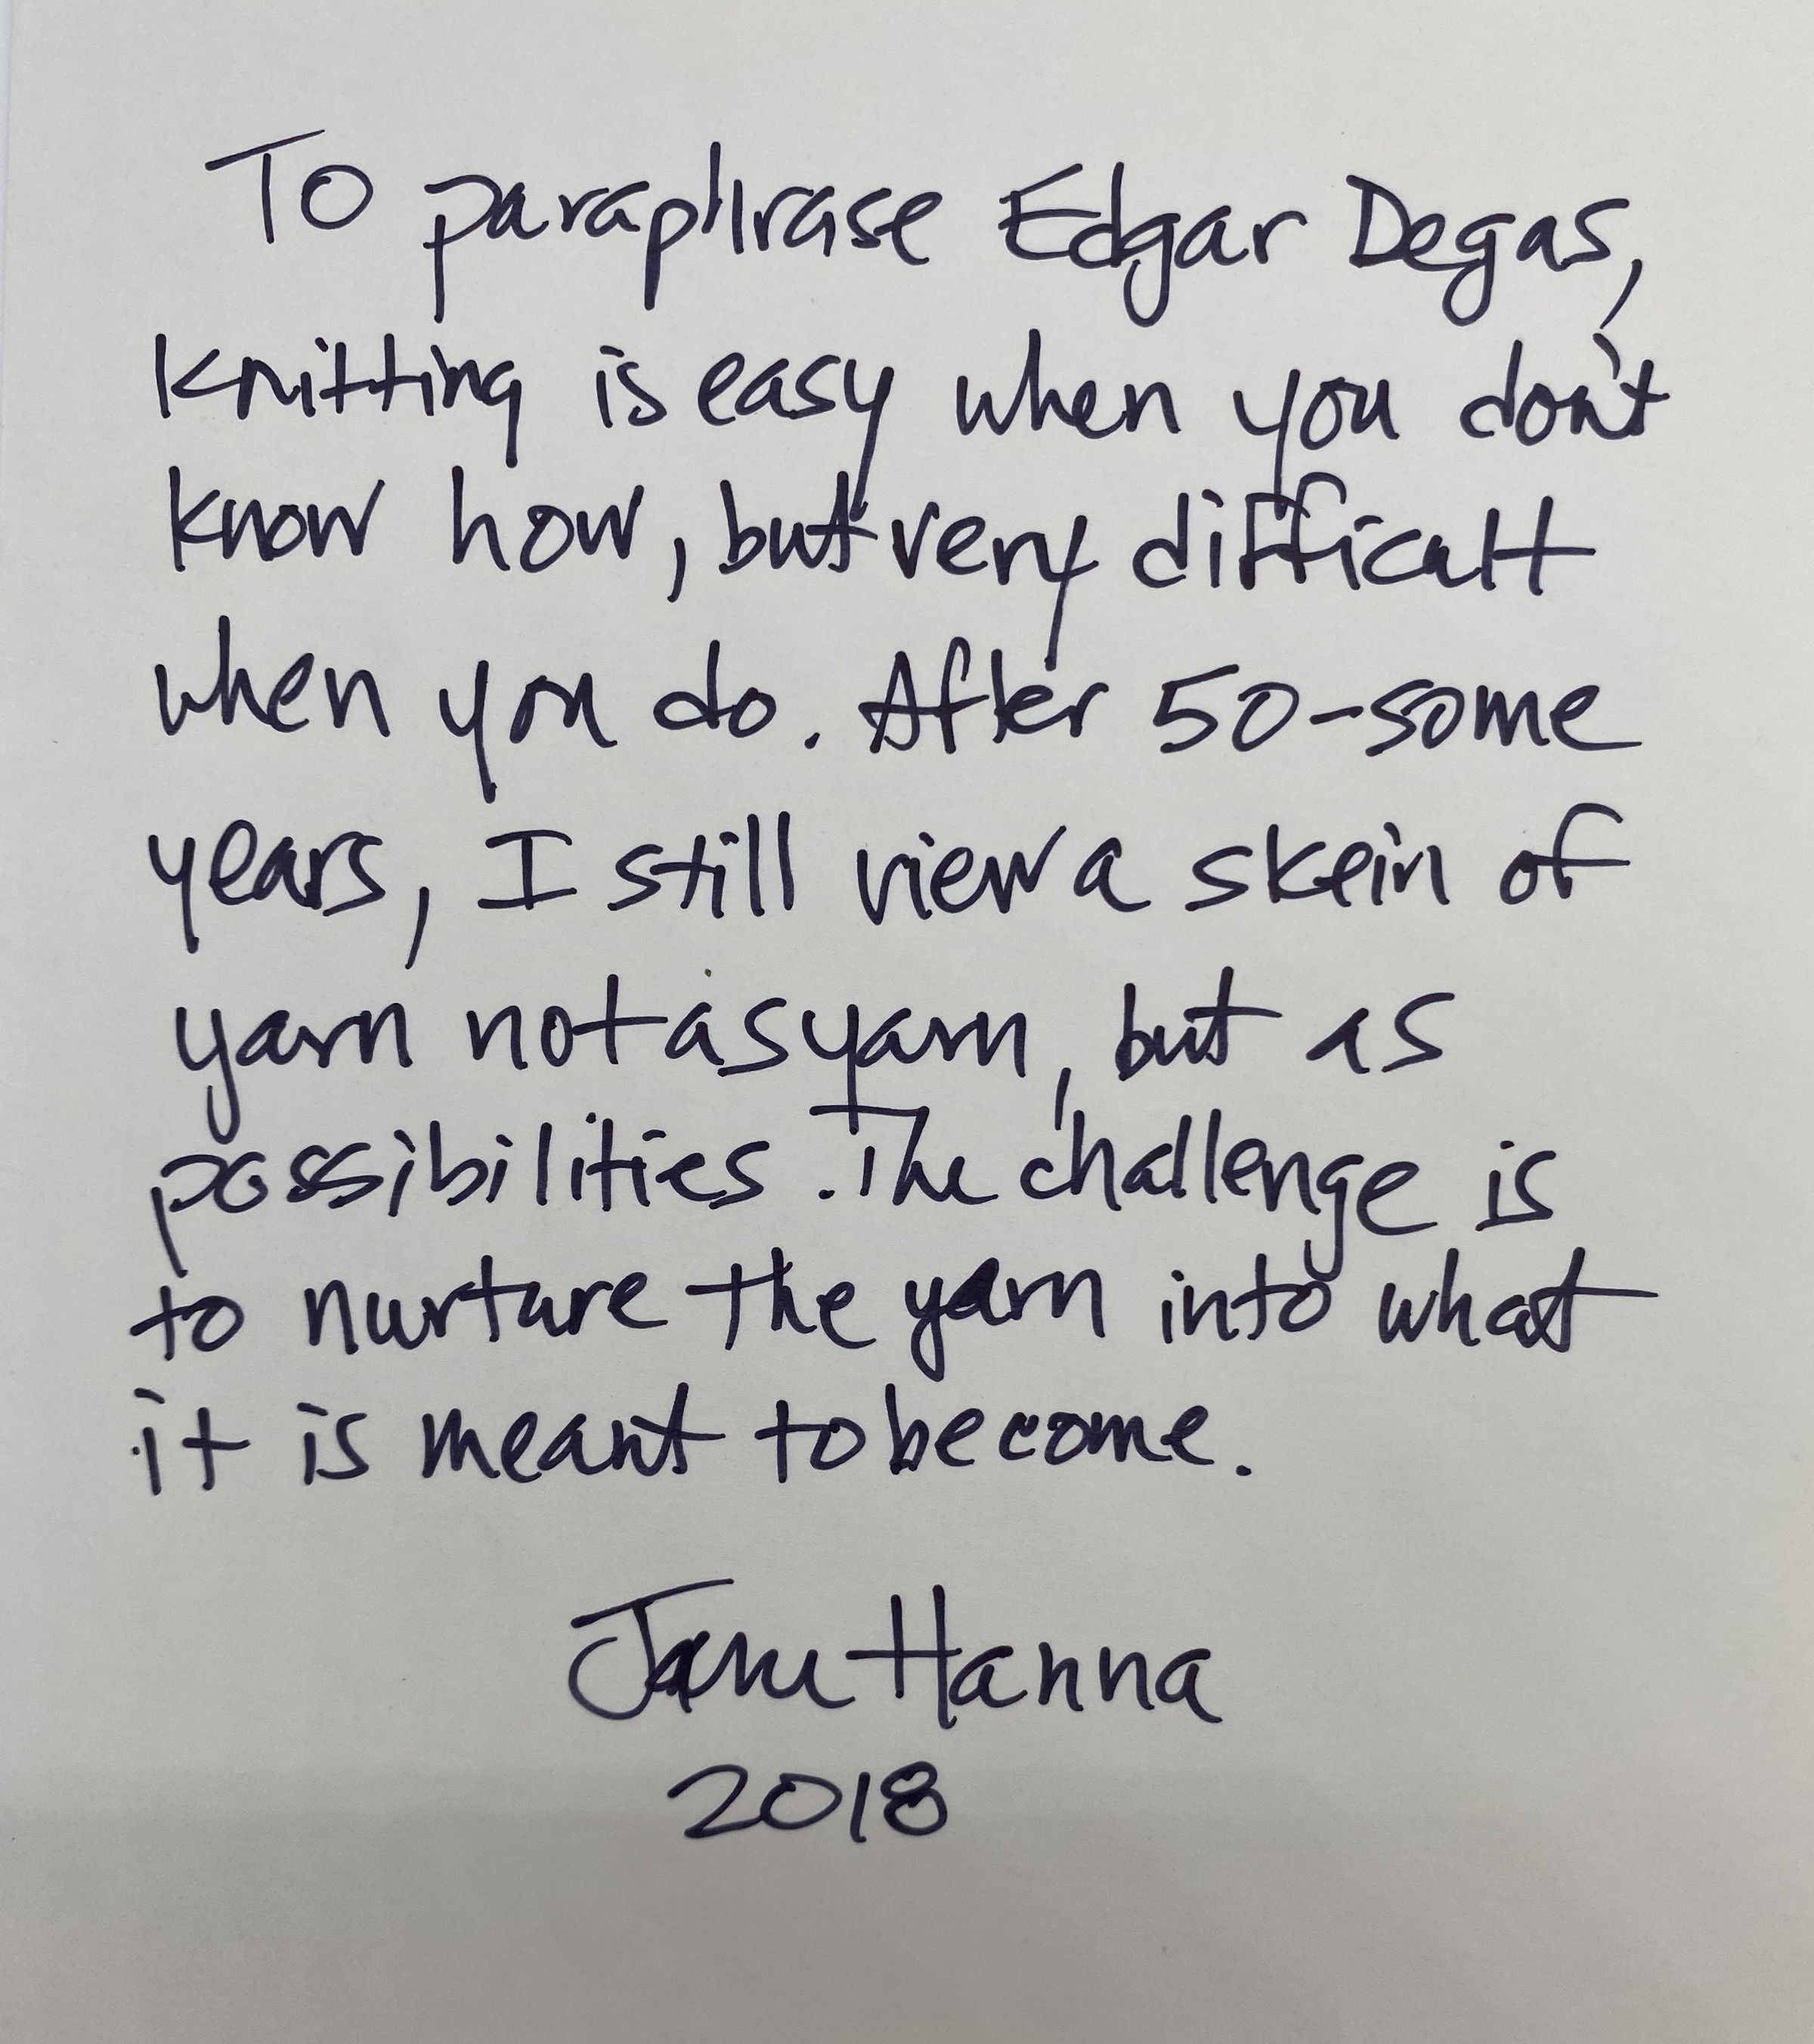 To paraphrase Edgar Degas,
Knitting is easy when you don't
know how, but very difficult
when you do. After 50-some
years, I still view a skein of
yarn not as yarn, but as
possibilities. The challenge is
to nurture the yarn into what
it is meant to become.
Jane Hanna
2018